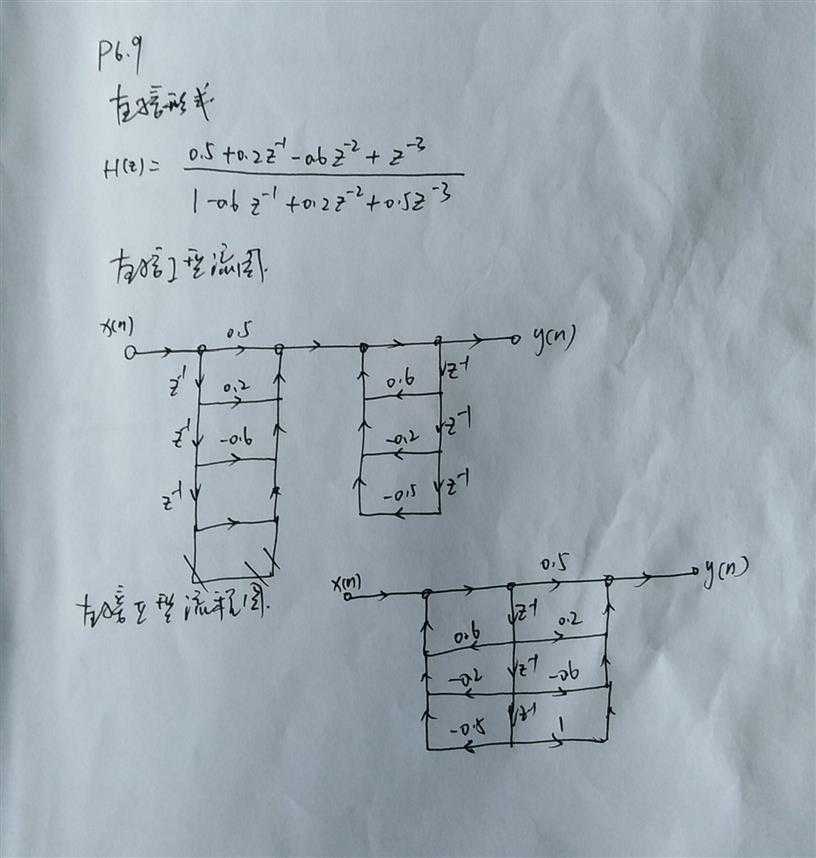 P6.9
直接形式
H(z)= 0.5+0.2z⁻¹-0.6z⁻²+z⁻³
1-0.6z⁻¹+0.2z⁻²+0.5z⁻³
直接I型流图.
x(n) 0.5 y(n)
z⁻¹ 0.2 0.6 z⁻¹
z⁻¹ -0.6 -0.2 z⁻¹
z⁻¹ -0.5 z⁻¹
直接II型流程图.
x(n) 0.5 y(n)
0.6 z⁻¹ 0.2
-0.2 z⁻¹ -0.6
-0.5 z⁻¹ 1